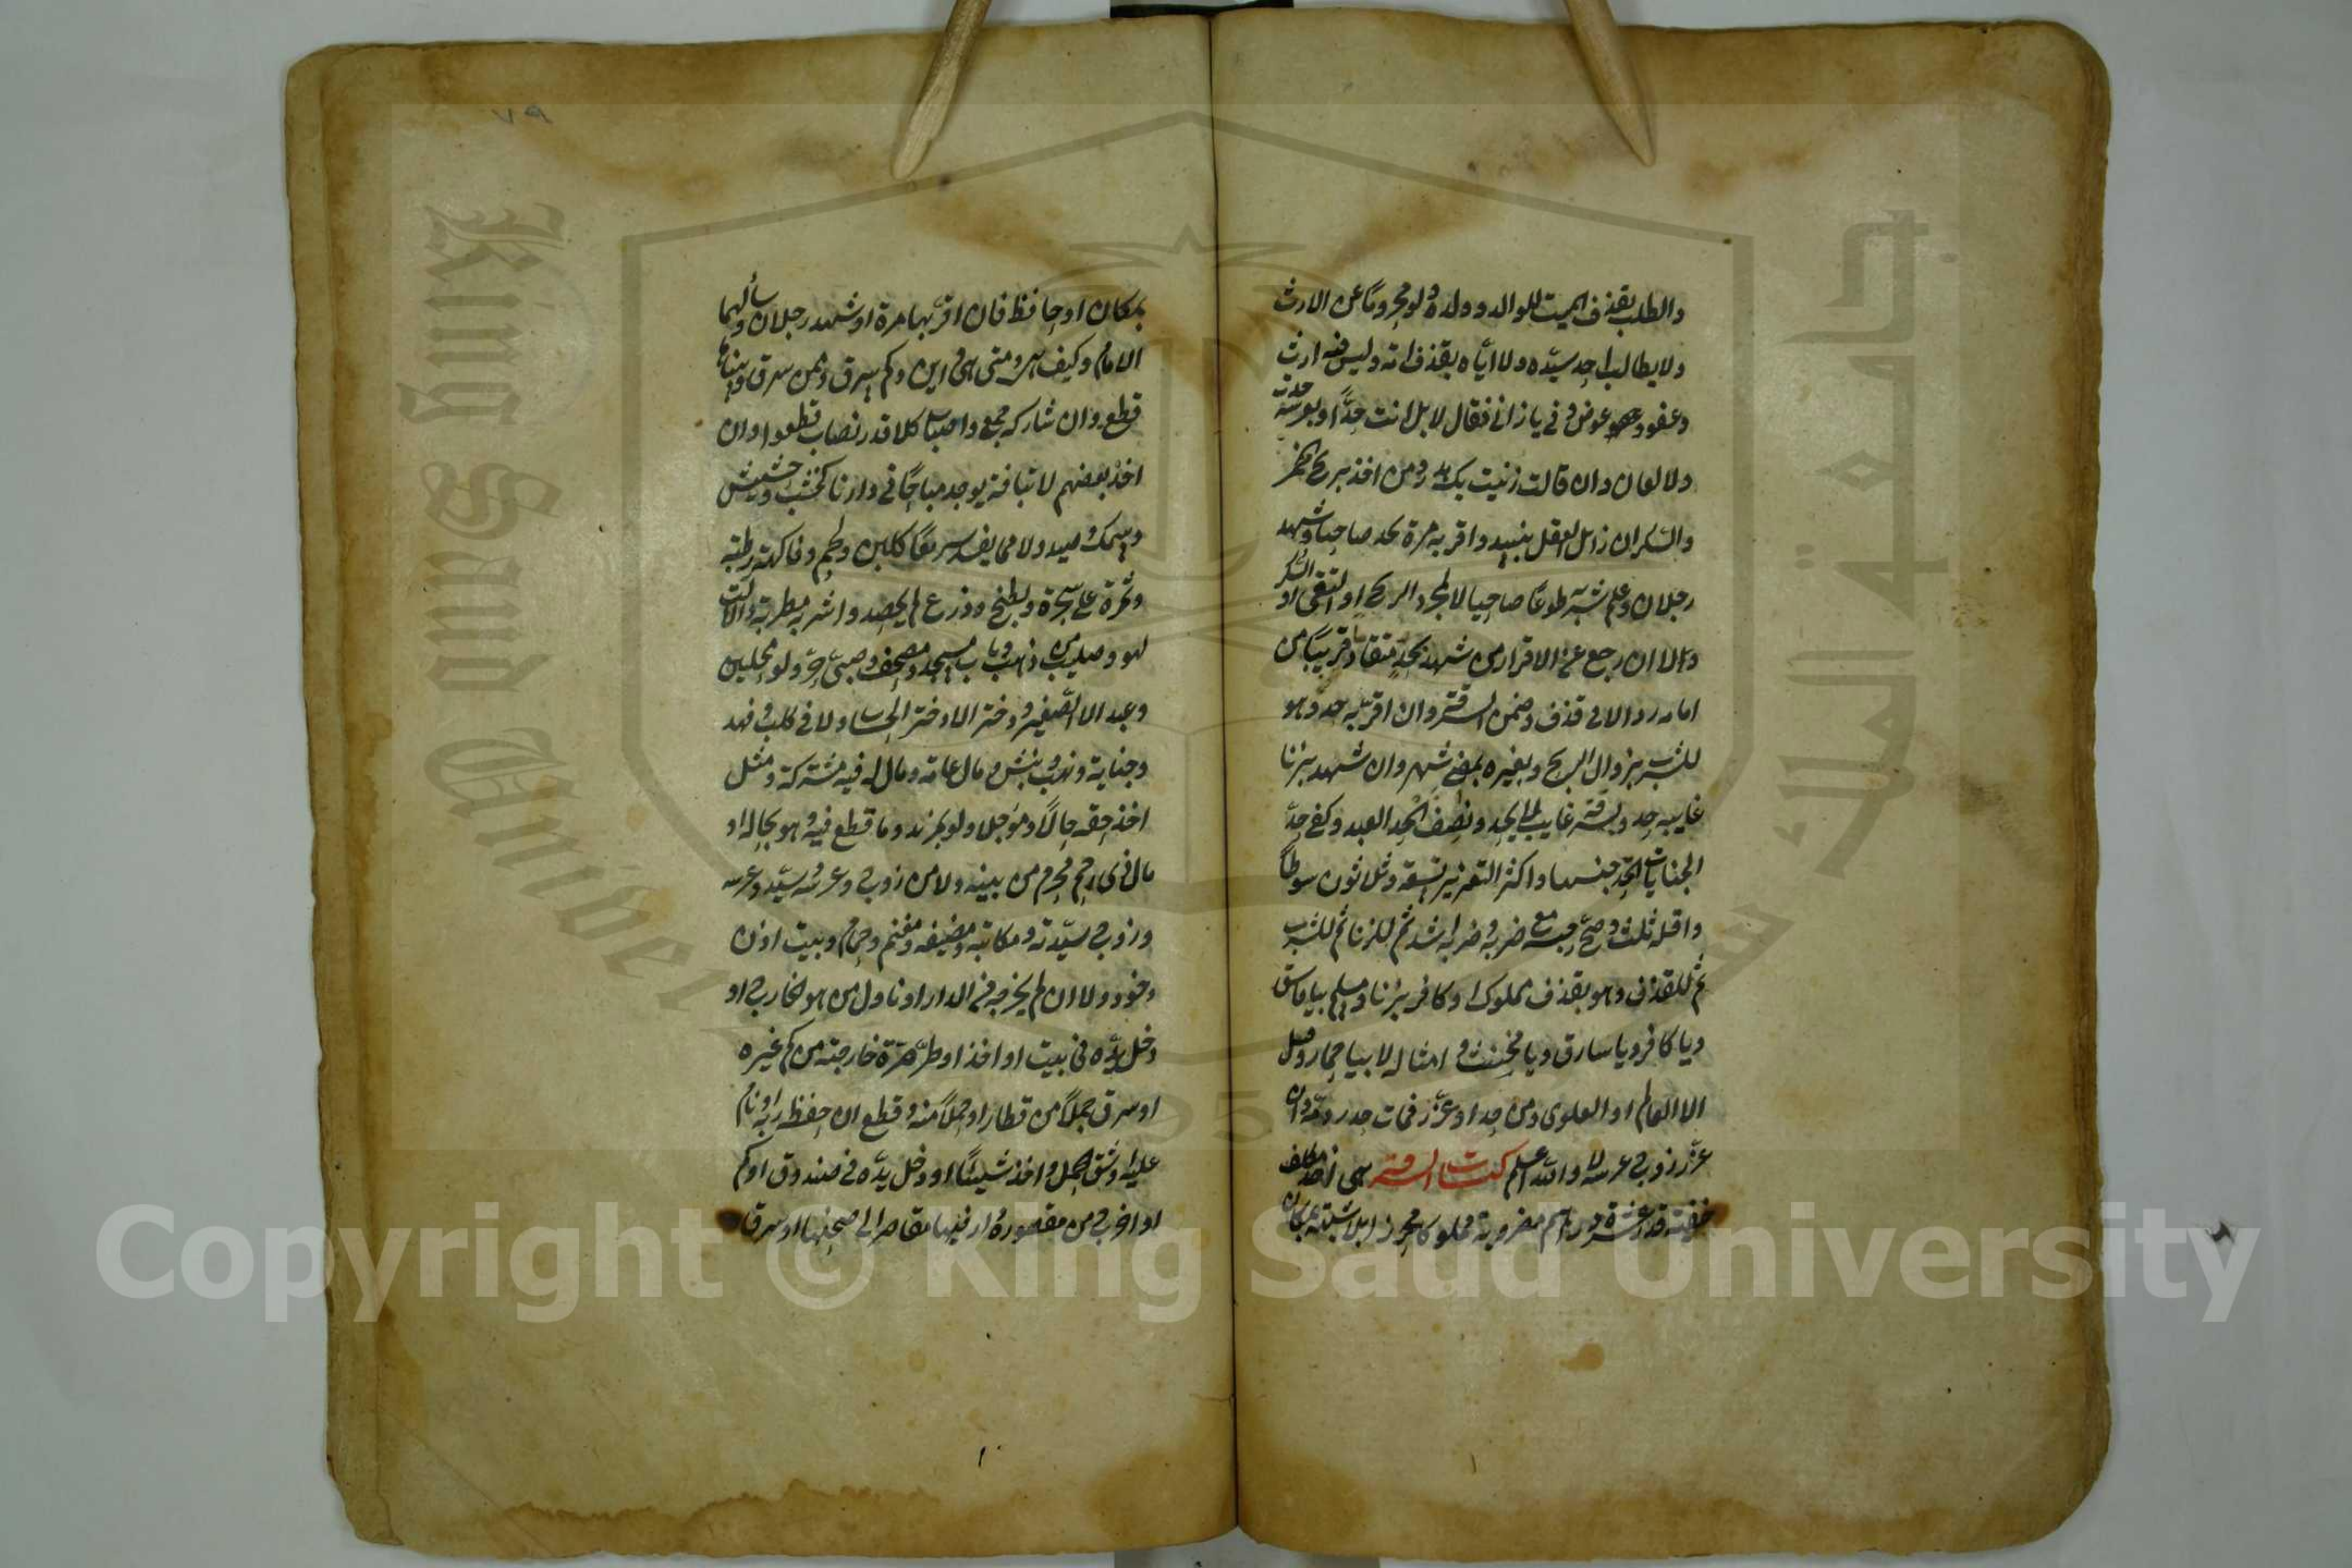 والطلب بقذف الميت للوالد وولده ولو محروما عن الارث
ولا يطالب احد سيده ولا اباه بقذف امه وليس فيه ارث
وعفو وعوض وفي يا زاني فقال لا بل انت حدا ولو عرسه حدت
ولا لعان وان قالت زنيت بك هدر ومن اخذ بريح خمر
والسكران زائل العقل بنبيذ واقر به مرة يحد صاحيا وشهد
رجلان وعلم شربه طوعا صاحيا لا لمجرد الريح او التقيئ او السكر
والا ان رجع عن الاقرار من شهد بحد متقادم قريبا من
امامه رد الا في قذف وضمن السرقة وان اقر به حد وهو
للشرب بزوال الريح وبغيره بمضي شهر وان شهد بزنا
غايبه حد وبسرقة غايب لم يحد ونصف الحد العبد وكفى حد
الجنايات اتحد جنسها واكثر التعزير تسعة وثلاثون سوطا
واقله ثلث وصح حبسه مع ضربه وضربه اشد ثم للزنا ثم للشرب
ثم للقذف وهو بقذف مملوك او كافر بزنا ومسلم بيا فاسق
ويا كافر ويا سارق ويا مخنث وامثاله لا بيا حمار وقيل
الا العالم او العلوي ومن حد او عزر فمات هدر دمه وان
عزر زوج عرسه لا والله اعلم كتاب السرقة هي اخذ مكلف
خفية قدر عشرة دراهم مضروبة مملوكا محرزا بلا شبهة بمكان
بمكان او حافظ فان اقر بها مرة او شهد رجلان وسألهما
الامام وكيف هي ومتى هي واين وكم سرق وممن سرق وبيناها
قطع وان شاركه جمع واصاب كلا قدر نصاب قطعوا وان
اخذ بعضهم لا بتافه يوجد مباحا في دارنا كخشب وحشيش
وسمك وصيد ولا مما يفسد سريعا كلبن ولحم وفاكهة رطبة
وثمرة على شجرة وبطيخ وزرع لم يحصد واشربة مطربة والات
لهو وصليب من ذهب وباب مسجد ومصحف وصبي حر ولو محليين
وعبد الا الصغير ودفتر الا دفتر الحساب ولا في كلب وفهد
وخيانة ونهب ونبش ومال عامة ومال له فيه شركة ومثل
اخذ حقه حالا ومؤجلا ولو بمزيد وما قطع فيه وهو بحاله او
مال ذي رحم محرم من بيته ولا من زوج وعرسه وسيده وعرسه
وزوج سيدته ومكاتبه ومضيفه ومغنم وحمام وبيت اذن
دخوله ولا ان لم يخرجه من الدار او ناول من هو خارج او
دخل يده في بيت او اخذ او طر صرة خارجة من كم غيره
او سرق جملا من قطار او حملا منه وقطع ان حفظه ربه او نام
عليه او شق الحمل واخذ شيئا او دخل يده في صندوق او كم
او اخرج من مقصورة دار فيها مقاصر الى صحنها او سرق
Copyright © King Saud University